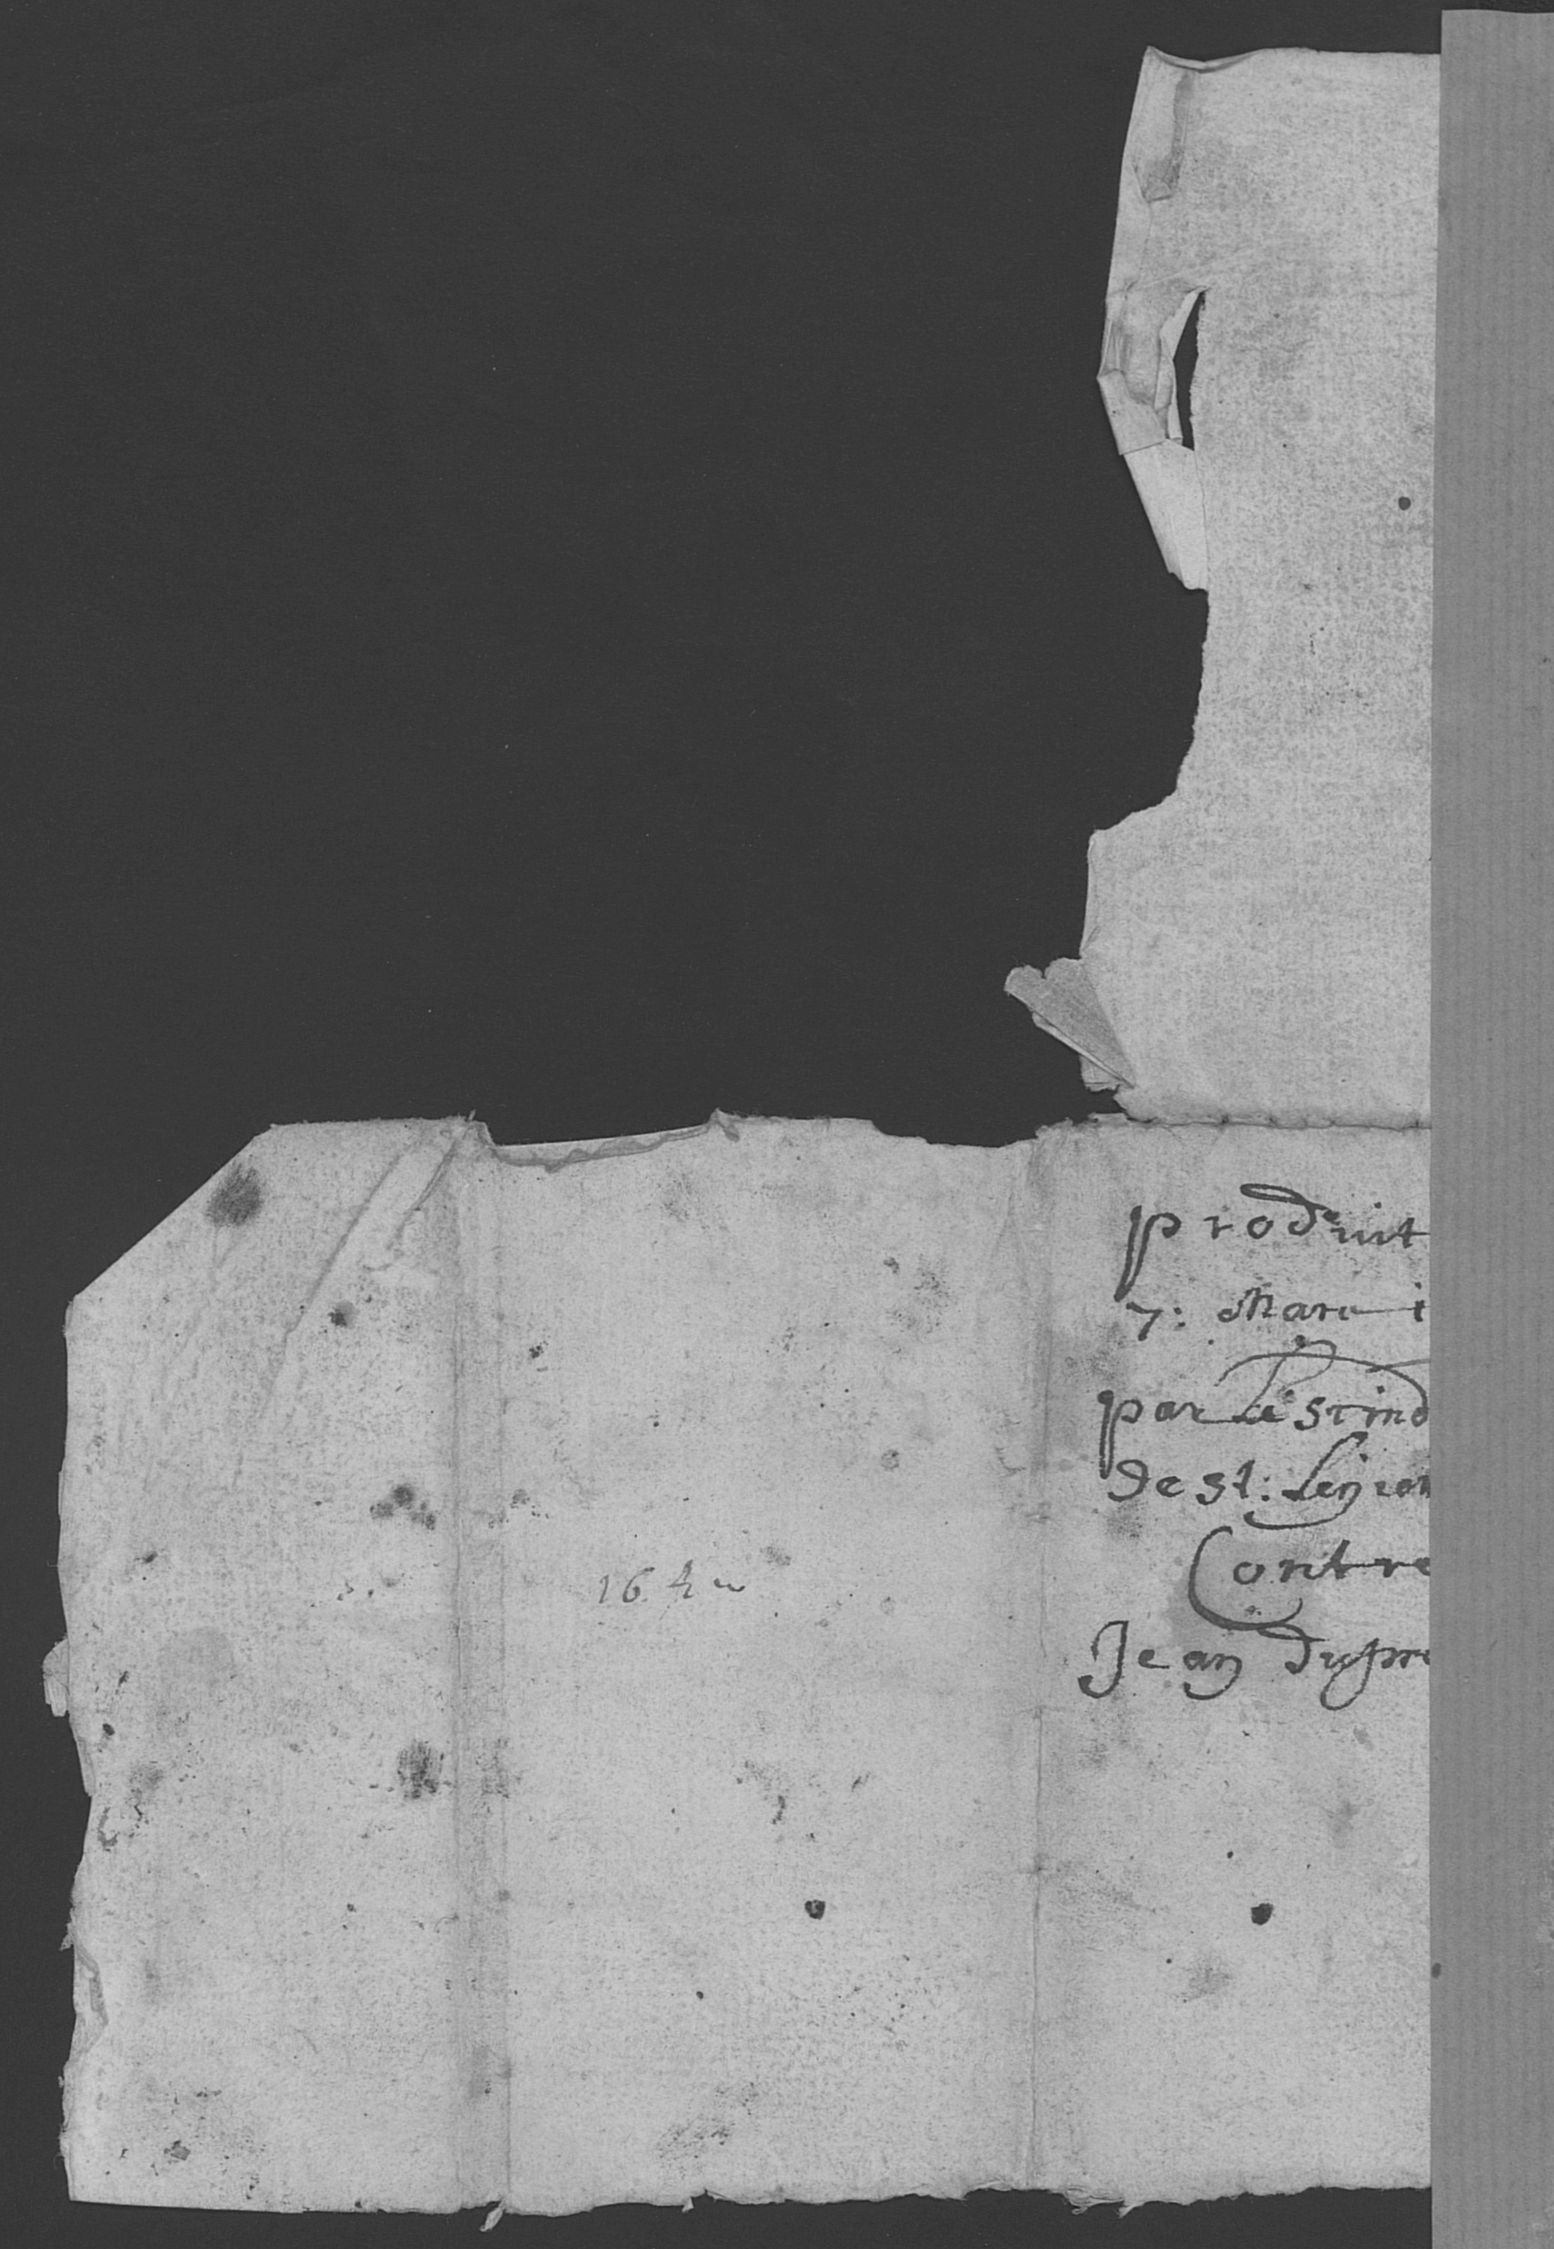 produit
7: Mars i
par Le sind
de st: Leyron
Contre
Jean dupre
16